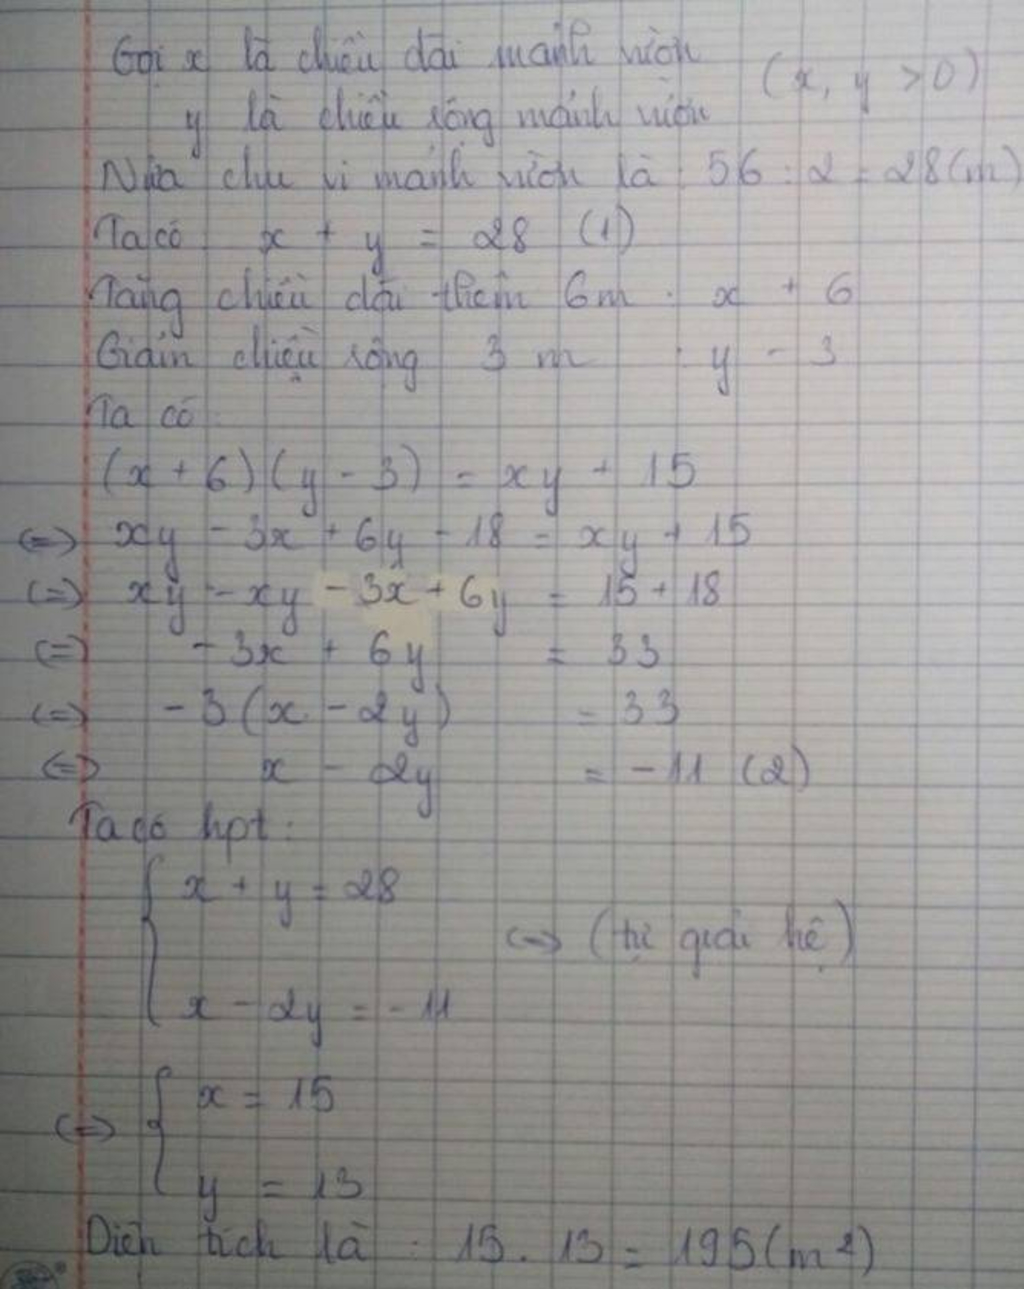 Gọi x là chiều dài mảnh vườn
(x, y > 0)
y là chiều rộng mảnh vườn
Nửa chu vi mảnh vườn là : 56 : 2 = 28 (m)
Ta có x + y = 28 (1)
Tăng chiều dài thêm 6m : x + 6
Giảm chiều rộng 3 m : y - 3
Ta có
(x + 6) (y - 3) = xy + 15
<=> xy - 3x + 6y - 18 = xy + 15
<=> xy - xy - 3x + 6y = 15 + 18
<=> - 3x + 6y = 33
<=> - 3 (x - 2y) = 33
<=> x - 2y = -11 (2)
Ta có hpt :
{ x + y = 28
<=> (tự giải hệ)
x - 2y = -11
<=> { x = 15
y = 13
Diện tích là : 15 . 13 = 195 (m²)